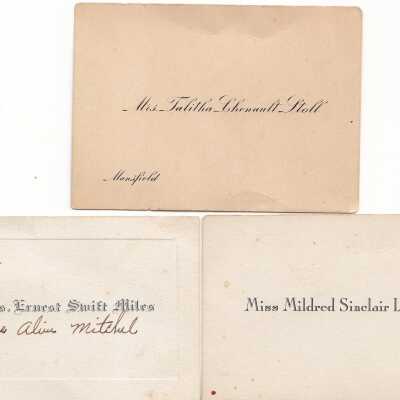 Mrs. Talitha Chenault Stoll
Mansfield
s. Ernest Swift Miles
Alive Mitchel
Miss Mildred Sinclair L